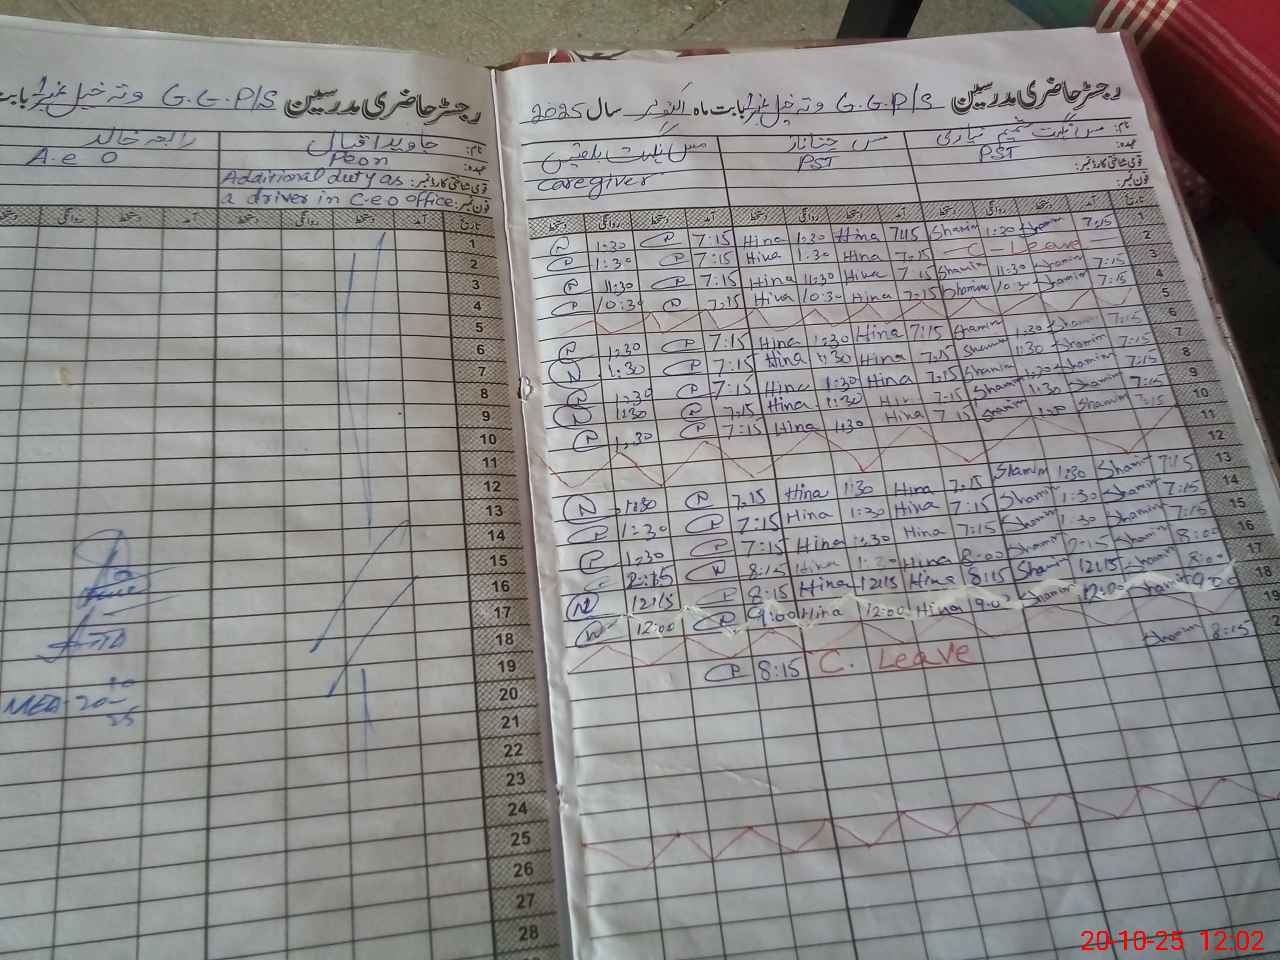 رجسٹر حاضری مدرسین G.G.P/S وتہ خیل غربی بابت
نام: جاوید اقبال
عہدہ: Peon A.e O
قومی شناختی کارڈ نمبر: Additional duty as
فون نمبر: a driver in C.e.o office
تاریخ آمد دستخط روانگی دستخط
1
2
3
4
5
6
7
8
9
10
11
12
13
14
15
16
17
18
19
20
21
22
23
24
25
26
27
28
MEA 20-10-25
رجسٹر حاضری مدرسین G.G.P/S وتہ خیل غربی بابت ماہ اکتوبر سال 2025
نام: مس نگہت شمیم نیازی مس حنا ناز
عہدہ: PST PST caregiver
قومی شناختی کارڈ نمبر:
فون نمبر:
تاریخ آمد دستخط روانگی دستخط آمد دستخط روانگی دستخط آمد دستخط روانگی دستخط
1 7:15 Shamim 1:30 Shamim 7:15 Hina 1:30 Hina 7:15 1:30
2 C-Leave 7:15 Hina 1:30 Hina 7:15 1:30
3 7:15 Shamim 11:30 Shamim 7:15 Hina 11:30 Hina 7:15 11:30
4 7:15 Shamim 10:30 Shamim 7:15 Hina 10:30 Hina 7:15 10:30
5
6 7:15 Shamim 1:30 Shamim 7:15 Hina 1:30 Hina 7:15 1:30
7 7:15 Shamim 1:30 Shamim 7:15 Hina 1:30 Hina 7:15 1:30
8 7:15 Shamim 1:30 Shamim 7:15 Hina 1:30 Hina 7:15 1:30
9 7:15 Shamim 1:30 Shamim 7:15 Hina 1:30 Hina 7:15 1:30
10 7:15 Shamim Shamim 7:15 Hina 1:30 Hina 7:15 1:30
11
12
13 7:15 Shamim 1:30 Shamim 7:15 Hina 1:30 Hina 7:15 1:30
14 7:15 Shamim 1:30 Shamim 7:15 Hina 1:30 Hina 7:15 1:30
15 7:15 Shamim 1:30 Shamim 7:15 Hina 1:30 Hina 7:15 1:30
16 8:00 Shamim Shamim 8:00 Hina Hina 8:15
17 8:00 Shamim 12:15 Shamim 8:15 Hina 12:15 Hina 8:15 12:15
18 9:00 Shamim 12:00 Shamim 9:02 Hina 12:00 Hina 9:00 12:00
19
8:15 Shamim C. Leave 8:15
20-10-25 12:02